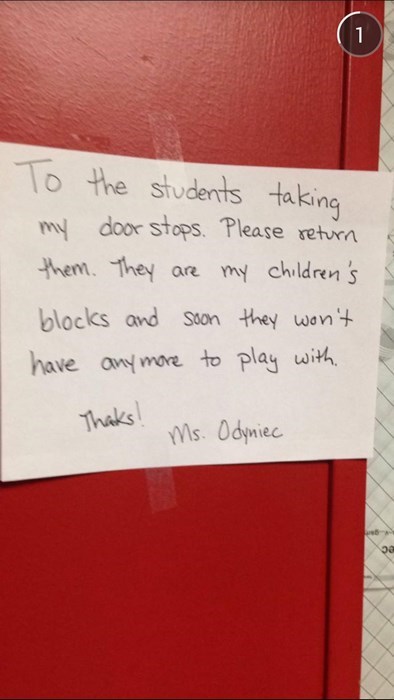 1
To the students taking
my door stops. Please return
them. They are my children's
blocks and soon they won't
have anymore to play with.
Thaks!
Ms. Odyniec